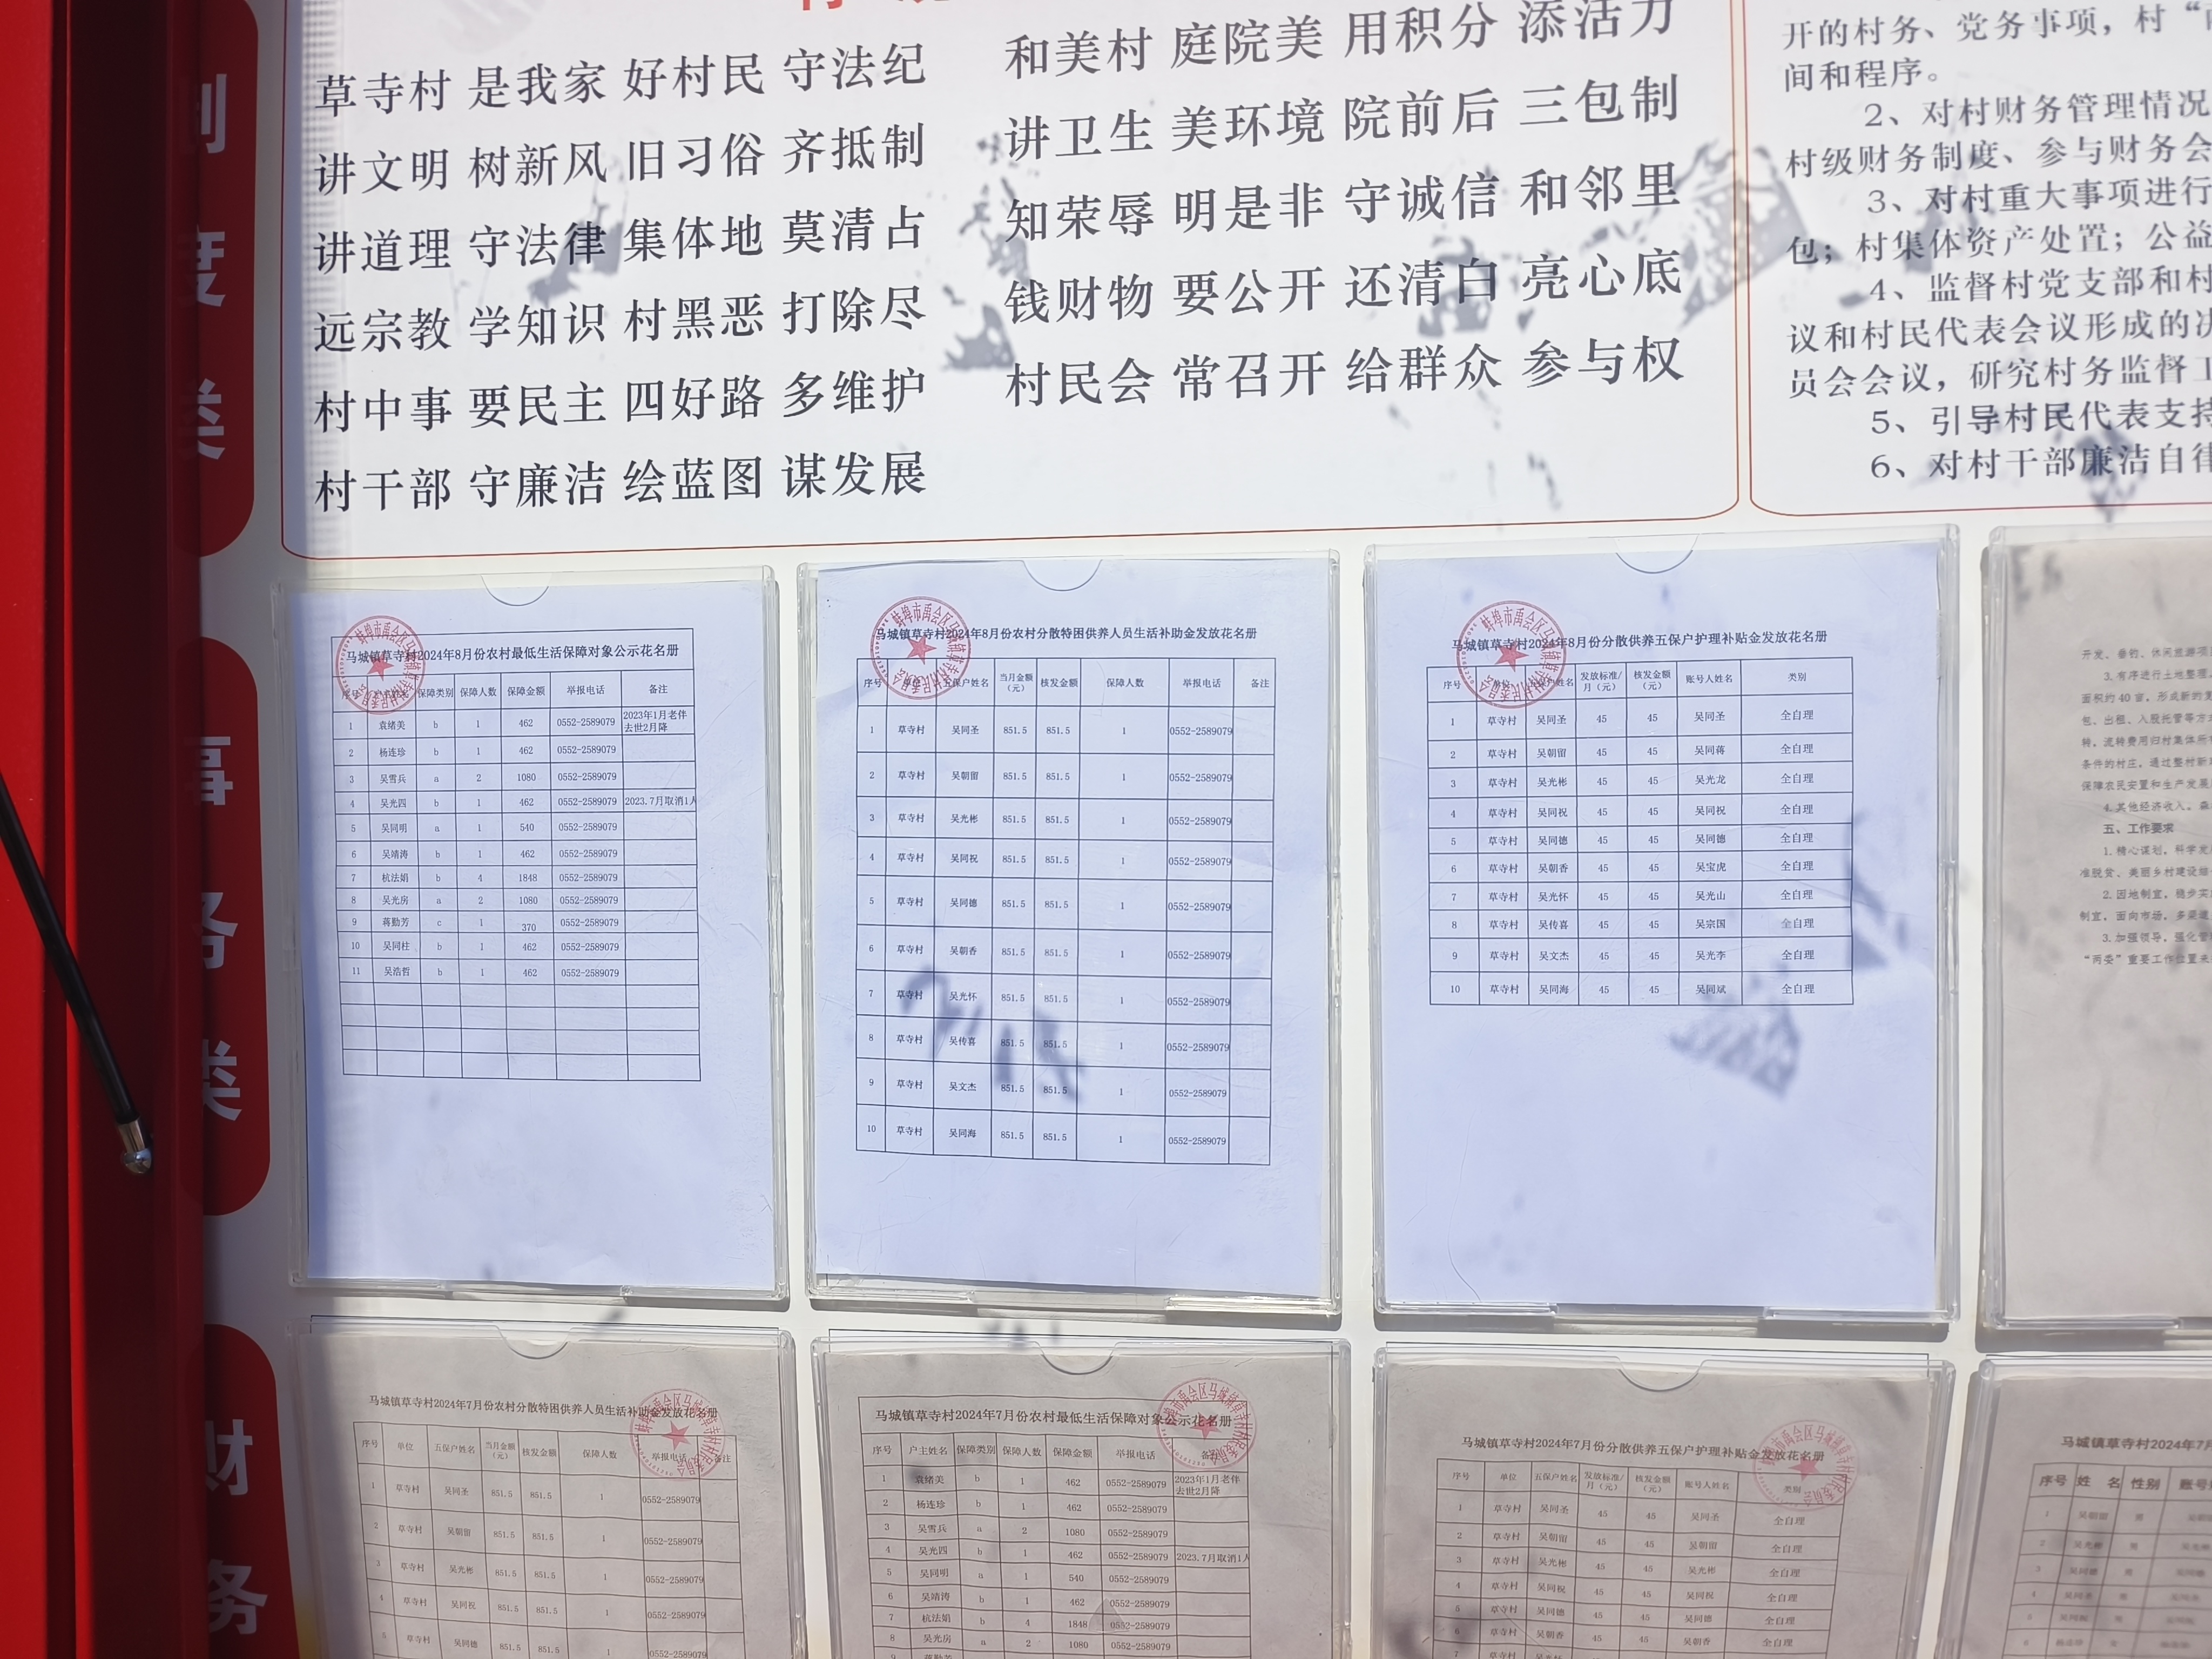 制
度
类
事
务
类
财
务
草寺村 是我家 好村民 守法纪
讲文明 树新风 旧习俗 齐抵制
讲道理 守法律 集体地 莫清占
远宗教 学知识 村黑恶 打除尽
村中事 要民主 四好路 多维护
村干部 守廉洁 绘蓝图 谋发展
和美村 庭院美 用积分 添活力
讲卫生 美环境 院前后 三包制
知荣辱 明是非 守诚信 和邻里
钱财物 要公开 还清白 亮心底
村民会 常召开 给群众 参与权
开的村务、党务事项，村“
间和程序。
2、对村财务管理情况
村级财务制度、参与财务会
3、对村重大事项进行
包；村集体资产处置；公益
4、监督村党支部和村
议和村民代表会议形成的决
员会会议，研究村务监督工
5、引导村民代表支持
6、对村干部廉洁自律
马城镇草寺村2024年8月份农村最低生活保障对象公示花名册
序号 保障类别 保障人数 保障金额 举报电话 备注
1 袁绪美 b 1 462 0552-2589079 2023年1月老伴去世2月降
2 杨连珍 b 1 462 0552-2589079
3 吴雪兵 a 2 1080 0552-2589079
4 吴光四 b 1 462 0552-2589079 2023.7月取消1人
5 吴同明 a 1 540 0552-2589079
6 吴靖涛 b 1 462 0552-2589079
7 杭法娟 b 4 1848 0552-2589079
8 吴光房 a 2 1080 0552-2589079
9 蒋勤芳 c 1 370 0552-2589079
10 吴同柱 b 1 462 0552-2589079
11 吴浩哲 b 1 462 0552-2589079
马城镇草寺村2024年8月份农村分散特困供养人员生活补助金发放花名册
序号 单位 五保户姓名 当月金额（元） 核发金额 保障人数 举报电话 备注
1 草寺村 吴同圣 851.5 851.5 1 0552-2589079
2 草寺村 吴朝留 851.5 851.5 1 0552-2589079
3 草寺村 吴光彬 851.5 851.5 1 0552-2589079
4 草寺村 吴同祝 851.5 851.5 1 0552-2589079
5 草寺村 吴同德 851.5 851.5 1 0552-2589079
6 草寺村 吴朝香 851.5 851.5 1 0552-2589079
7 草寺村 吴光怀 851.5 851.5 1 0552-2589079
8 草寺村 吴传喜 851.5 851.5 1 0552-2589079
9 草寺村 吴文杰 851.5 851.5 1 0552-2589079
10 草寺村 吴同海 851.5 851.5 1 0552-2589079
马城镇草寺村2024年8月份分散供养五保户护理补贴金发放花名册
序号 单位 五保户姓名 发放标准/月（元） 核发金额（元） 账号人姓名 类别
1 草寺村 吴同圣 45 45 吴同圣 全自理
2 草寺村 吴朝留 45 45 吴同蒋 全自理
3 草寺村 吴光彬 45 45 吴光龙 全自理
4 草寺村 吴同祝 45 45 吴同祝 全自理
5 草寺村 吴同德 45 45 吴同德 全自理
6 草寺村 吴朝香 45 45 吴宝虎 全自理
7 草寺村 吴光怀 45 45 吴光山 全自理
8 草寺村 吴传喜 45 45 吴宗国 全自理
9 草寺村 吴文杰 45 45 吴光李 全自理
10 草寺村 吴同海 45 45 吴同斌 全自理
开发、垂钓、休闲旅游项
3.有序进行土地整理。
面积约40亩，形成新的
包、出租、入股托管等方
转，流转费用归村集体所
条件的村庄，通过整村新
保障农民安置和生产发展
4.其他经济收入。
五、工作要求
1.精心谋划，科学发
准脱贫、美丽乡村建设
2.因地制宜，稳步实
制宜，面向市场，多渠道
3.加强领导，强化管
“两委”重要工作位置来
马城镇草寺村2024年7月份农村分散特困供养人员生活补助金发放花名册
序号 单位 五保户姓名 当月金额（元） 核发金额 保障人数 举报电话 备注
1 草寺村 吴同圣 851.5 851.5 1 0552-2589079
2 草寺村 吴朝留 851.5 851.5 1 0552-2589079
3 草寺村 吴光彬 851.5 851.5 1 0552-2589079
4 草寺村 吴同祝 851.5 851.5 1 0552-2589079
5 草寺村 吴同德 851.5 851.5 1 0552-2589079
马城镇草寺村2024年7月份农村最低生活保障对象公示花名册
序号 户主姓名 保障类别 保障人数 保障金额 举报电话 备注
1 袁绪美 b 1 462 0552-2589079 2023年1月老伴去世2月降
2 杨连珍 b 1 462 0552-2589079
3 吴雪兵 a 2 1080 0552-2589079
4 吴光四 b 1 462 0552-2589079 2023.7月取消1人
5 吴同明 a 1 540 0552-2589079
6 吴靖涛 b 1 462 0552-2589079
7 杭法娟 b 4 1848 0552-2589079
8 吴光房 a 2 1080 0552-2589079
马城镇草寺村2024年7月份分散供养五保户护理补贴金发放花名册
序号 单位 五保户姓名 发放标准/月（元） 核发金额（元） 账号人姓名 类别
1 草寺村 吴同圣 45 45 吴同圣 全自理
2 草寺村 吴朝留 45 45 吴朝留 全自理
3 草寺村 吴光彬 45 45 吴光彬 全自理
4 草寺村 吴同祝 45 45 吴同祝 全自理
5 草寺村 吴同德 45 45 吴同德 全自理
6 草寺村 吴朝香 45 45 吴朝香 全自理
马城镇草寺村2024年7月
序号 姓 名 性别 账号